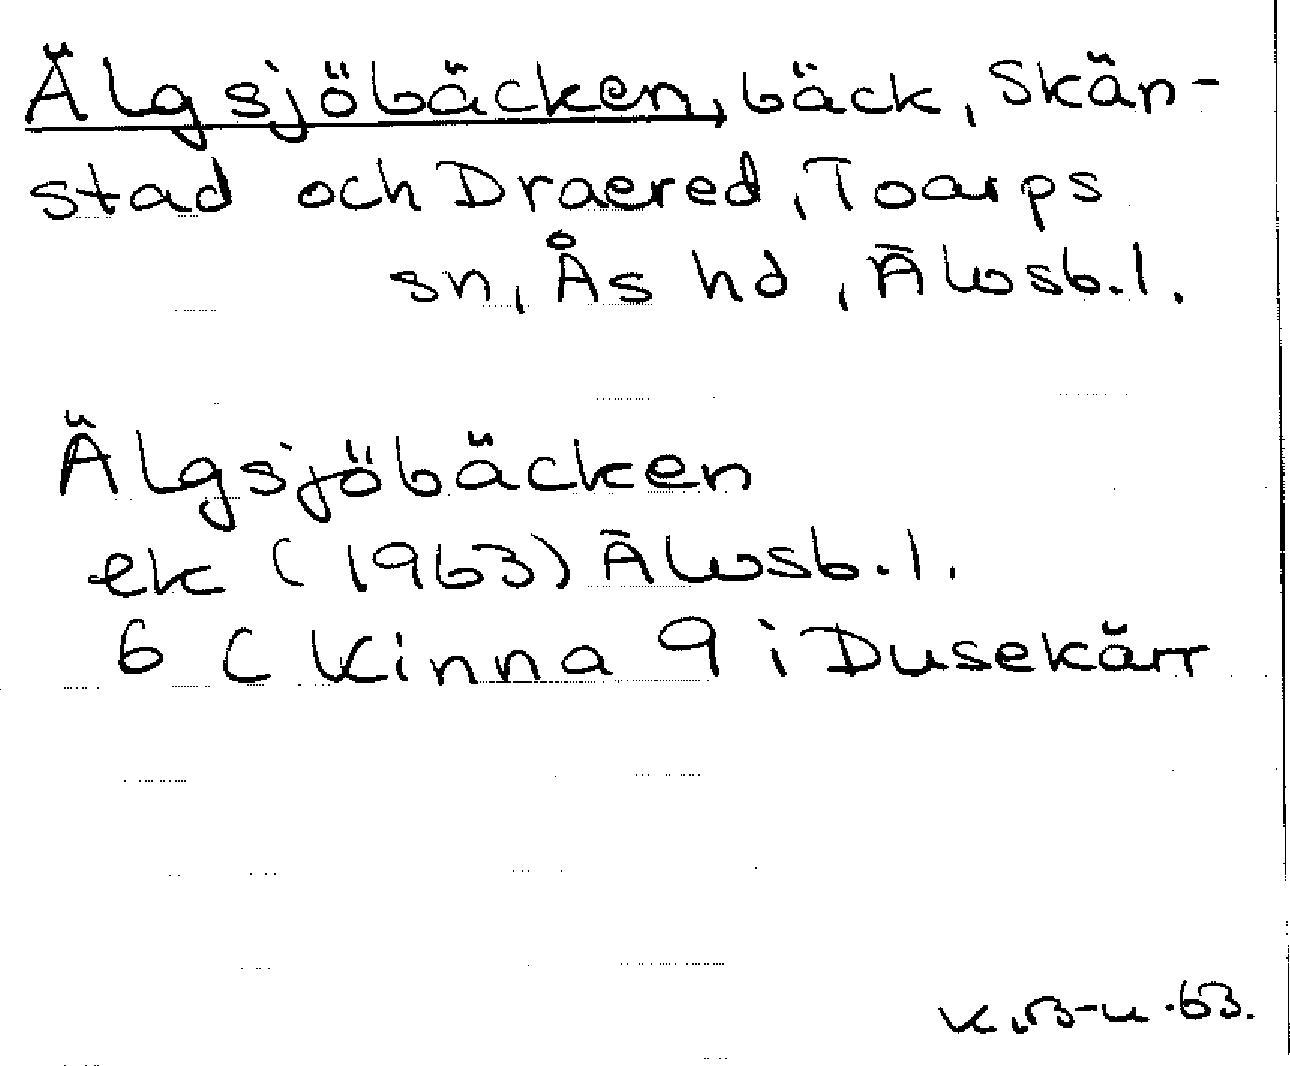 Älgsjöbäcken, bäck, Skän-
stad och Draered, Toarps
sn, Ås hd, Älvsb.l.
Älgsjöbäcken
ek (1963) Älvsb.l.
6 ( Kinna 9 i Dusekärr
K.B-u .63.